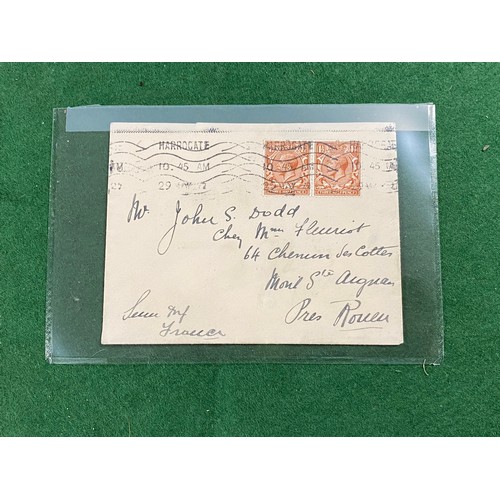 HARROGATE HARROGATE HA
AM 10.45 AM 45 AM
27 29
Mr John S. Dodd
Chez Mme Fleurist
64 Chemin des Cottes
Mont Ste Aignan
Pres Rouen
France